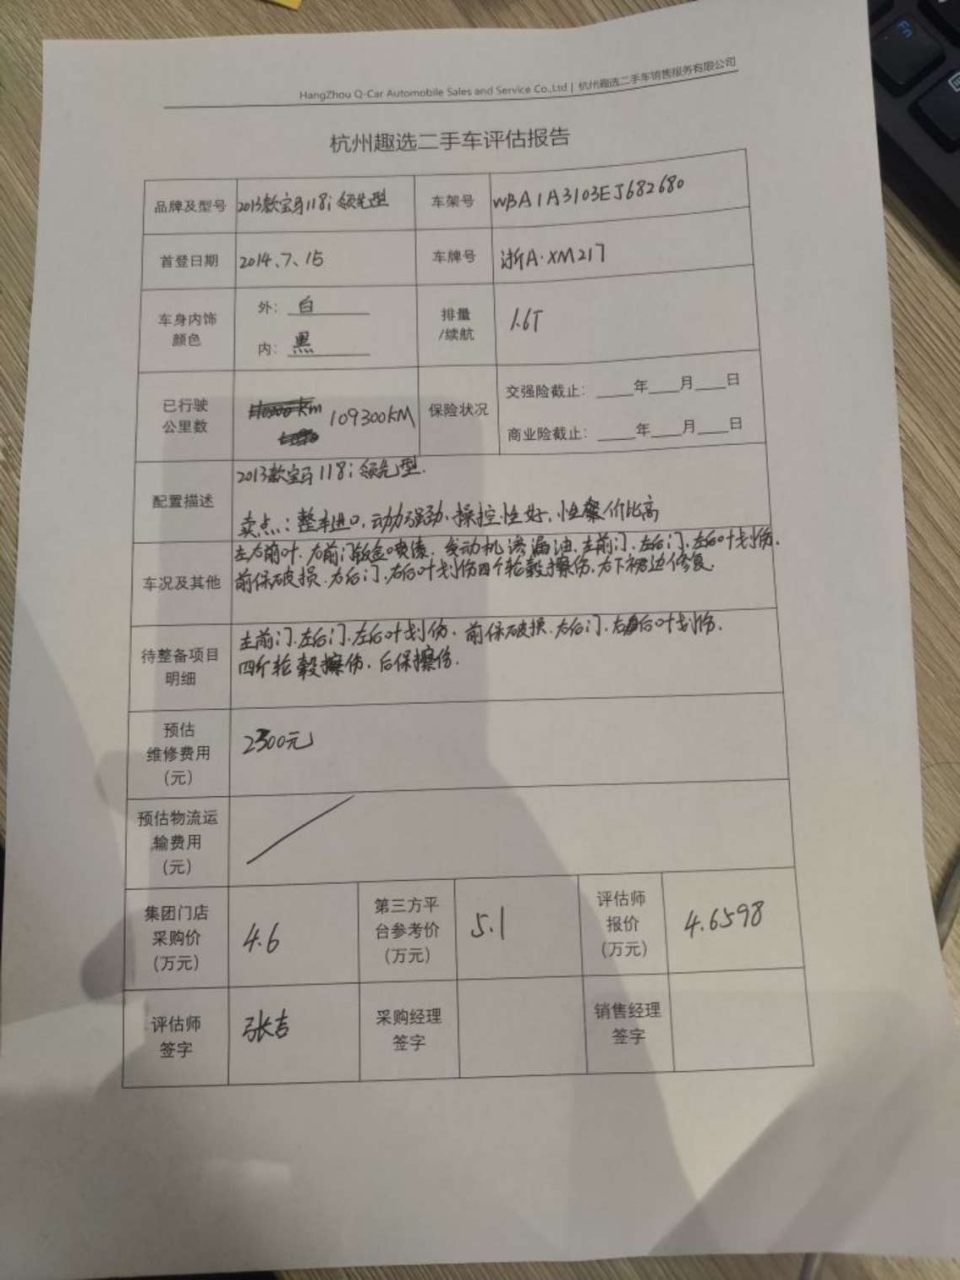 HangZhou Q-Car Automobile Sales and Service Co.,Ltd | 杭州趣选二手车销售服务有限公司
杭州趣选二手车评估报告
品牌及型号 2013款宝马118i 领先型 车架号 WBA1A3103EJ682680
首登日期 2014、7、15 车牌号 浙A·XM217
车身内饰颜色 外: 白 内: 黑 排量/续航 1.6T
已行驶公里数 109300KM 保险状况 交强险截止: ____年____月____日
商业险截止: ____年____月____日
配置描述 2013款宝马118i 领先型.
卖点: 整车进口, 动力强劲、操控性好, 性价比高
车况及其他 左右前叶、右前门钣金喷漆、发动机渗漏油、左前门、左后门、左后叶划伤、
前保破损、右后门、右后叶划伤四个轮毂擦伤、右下裙边修复
待整备项目明细 左前门、左后门、左后叶划伤、前保破损、右后门、右后叶划伤、
四个轮毂擦伤、后保擦伤.
预估维修费用(元) 2300元
预估物流运输费用(元)
集团门店采购价(万元) 4.6 第三方平台参考价(万元) 5.1 评估师报价(万元) 4.6598
评估师签字 张吉 采购经理签字 销售经理签字